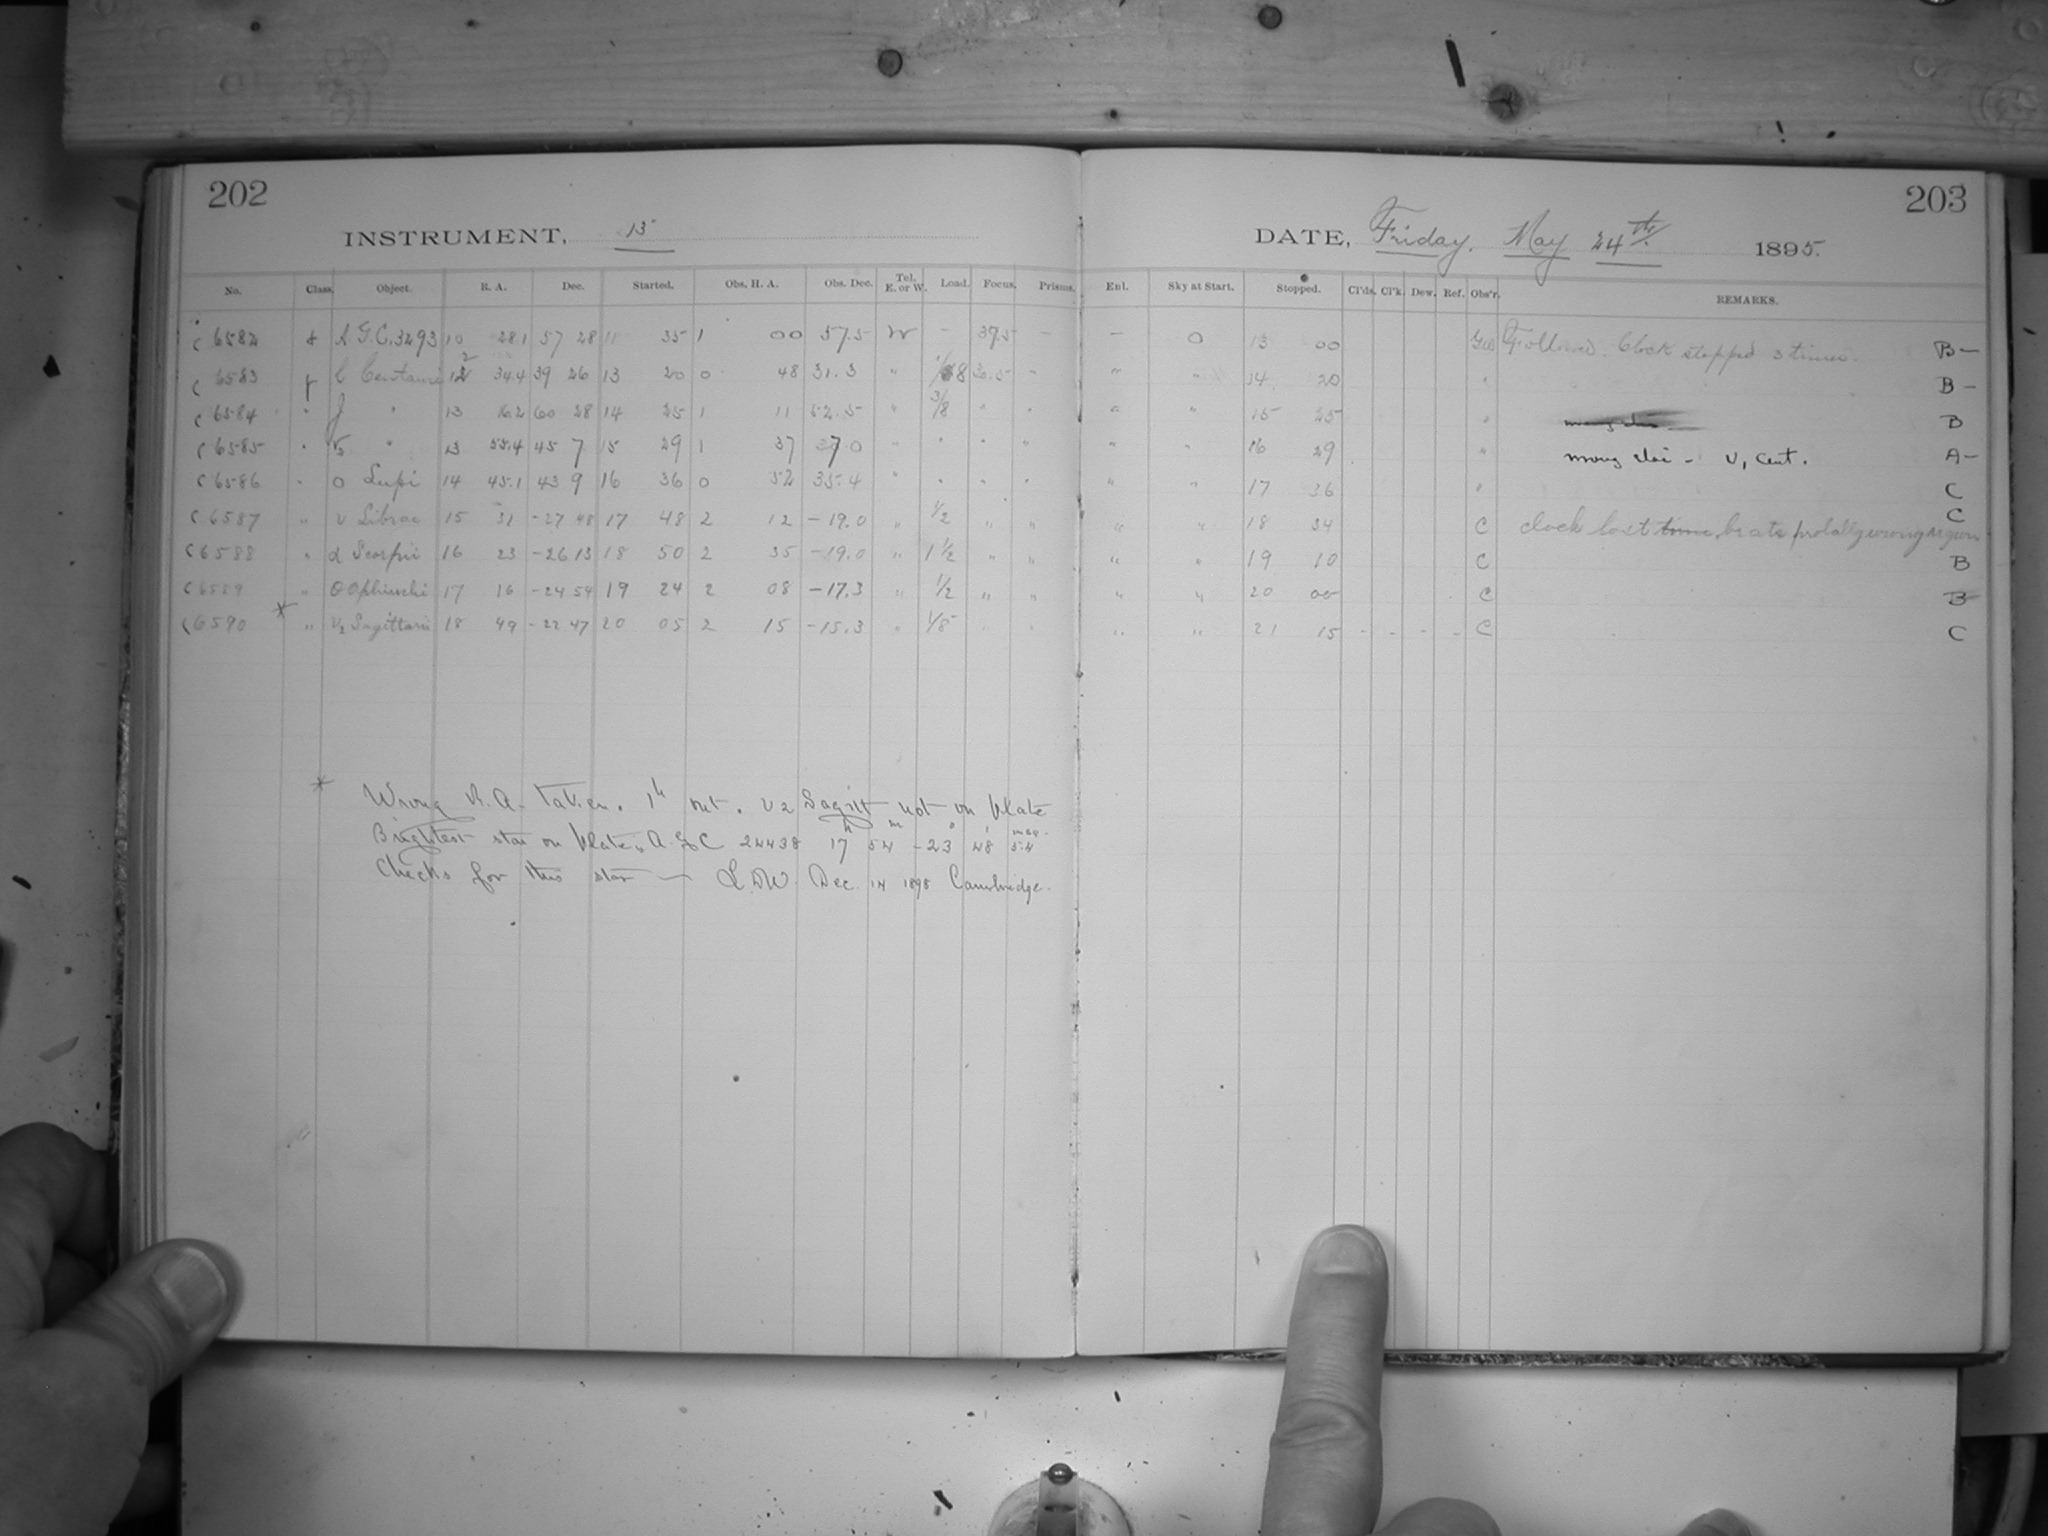 202
203
INSTRUMENT, 13
DATE, Friday, May 24th 1895.
No. Class. Object. R. A. Dec. Started. Obs. H. A. Obs. Dec. Tel. E. or W. Load. Focus. Prisms. Enl. Sky at Start. Stopped. Cl'ds. Cl'k. Dew. Ref. Obs'r. REMARKS.
C 6582 A.G.C. 3293 10 28.1 57 28 11 35 1 00 57.5 W - 37.5 - - 0 13 00 Followed. Clock stopped 3 times. B-
C 6583 l Centauri 12 34.4 39 26 13 20 0 48 31.3 " " " " 14 20 " B-
C 6584 " J " 13 16.2 60 28 14 25 1 11 52.5 " 3/8 " " " " 15 25 " B
C 6585 " " 13 55.4 45 7 15 29 1 37 37.0 " " " " " " 16 29 " wrong star - υ, Cent. A-
C 6586 " o Lupi 14 45.1 43 9 16 36 0 52 35.4 " " " " " " 17 36 " C
C 6587 " υ Librae 15 31 -27 48 17 48 2 12 -19.0 " 1/2 " " " " 18 34 C clock lost time, beats probally wrong C
C 6588 " α Scorpii 16 23 -26 13 18 50 2 35 -19.0 " 1 1/2 " " " " 19 10 C B
C 6589 " θ Ophiuchi 17 16 -24 54 19 24 2 08 -17.3 " 1/2 " " " " 20 00 C B
C 6590 * " ν2 Sagittarii 18 49 -22 47 20 05 2 15 -15.3 " 1/5 " " " " 21 15 - - - - C C
* Wrong R.A. taken. 1h out. ν2 Sagitt not on plate
Brightest star on plate is A.G.C 24438 17h 54m -23° 48' mag. 5.4
Checks for this star — L.D.W. Dec. 14 1898 Cambridge.